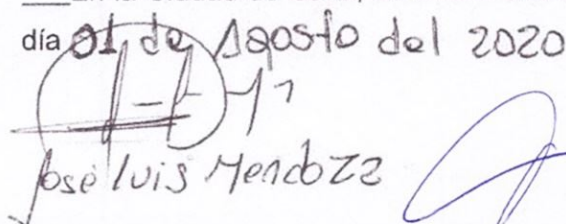 día 01 de Agosto del 2020
José Luis Mendoza